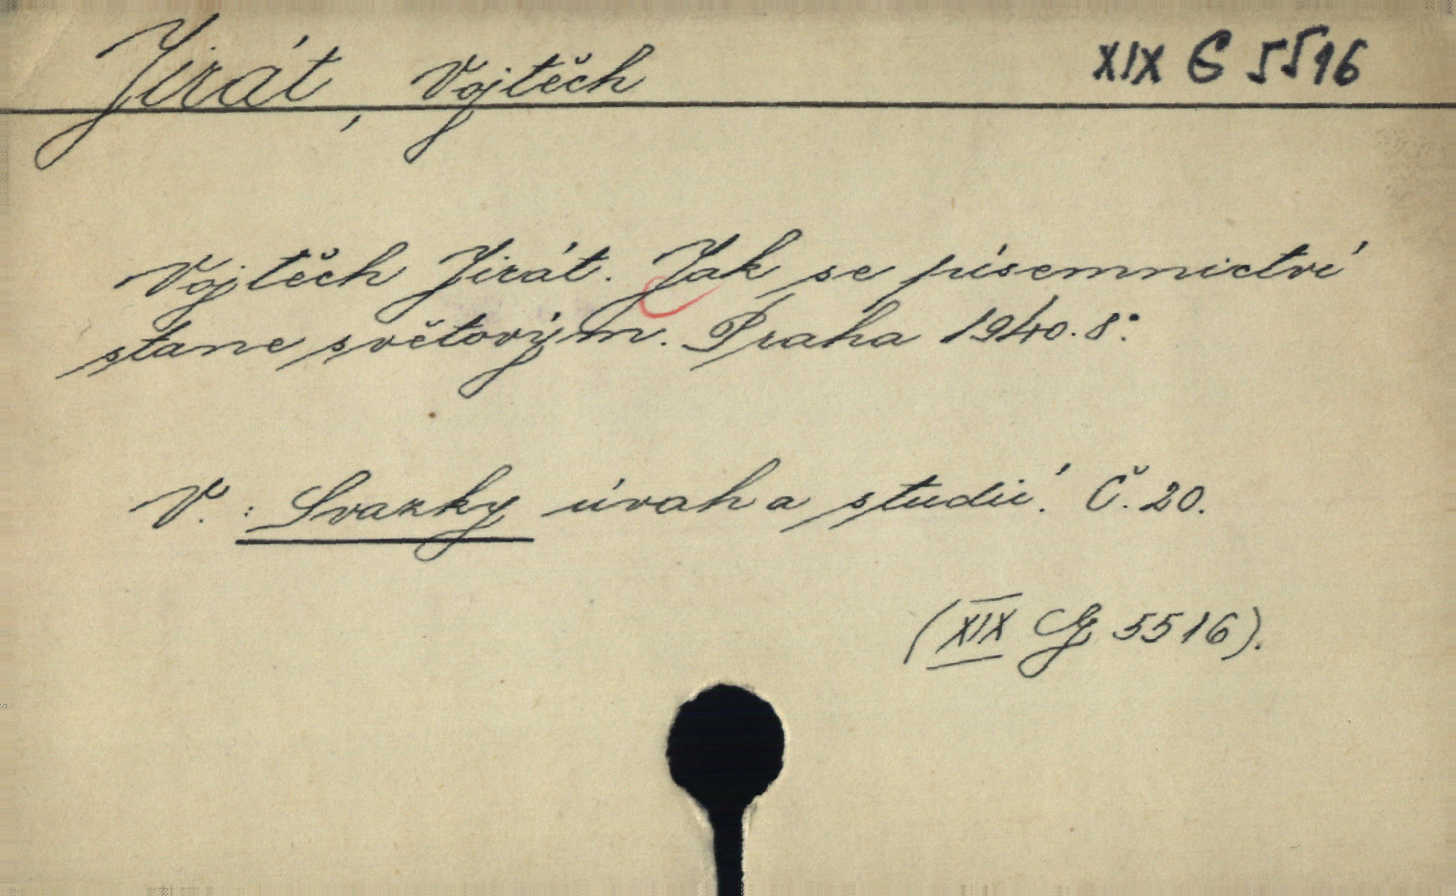 Jirát, Vojtěch
XIX G 5516
Vojtěch Jirát. Jak se písemnictví
stane světovým. Praha 1940. 8°.
V.: Svazky úvah a studií. Č. 20.
(XIX G 5516).